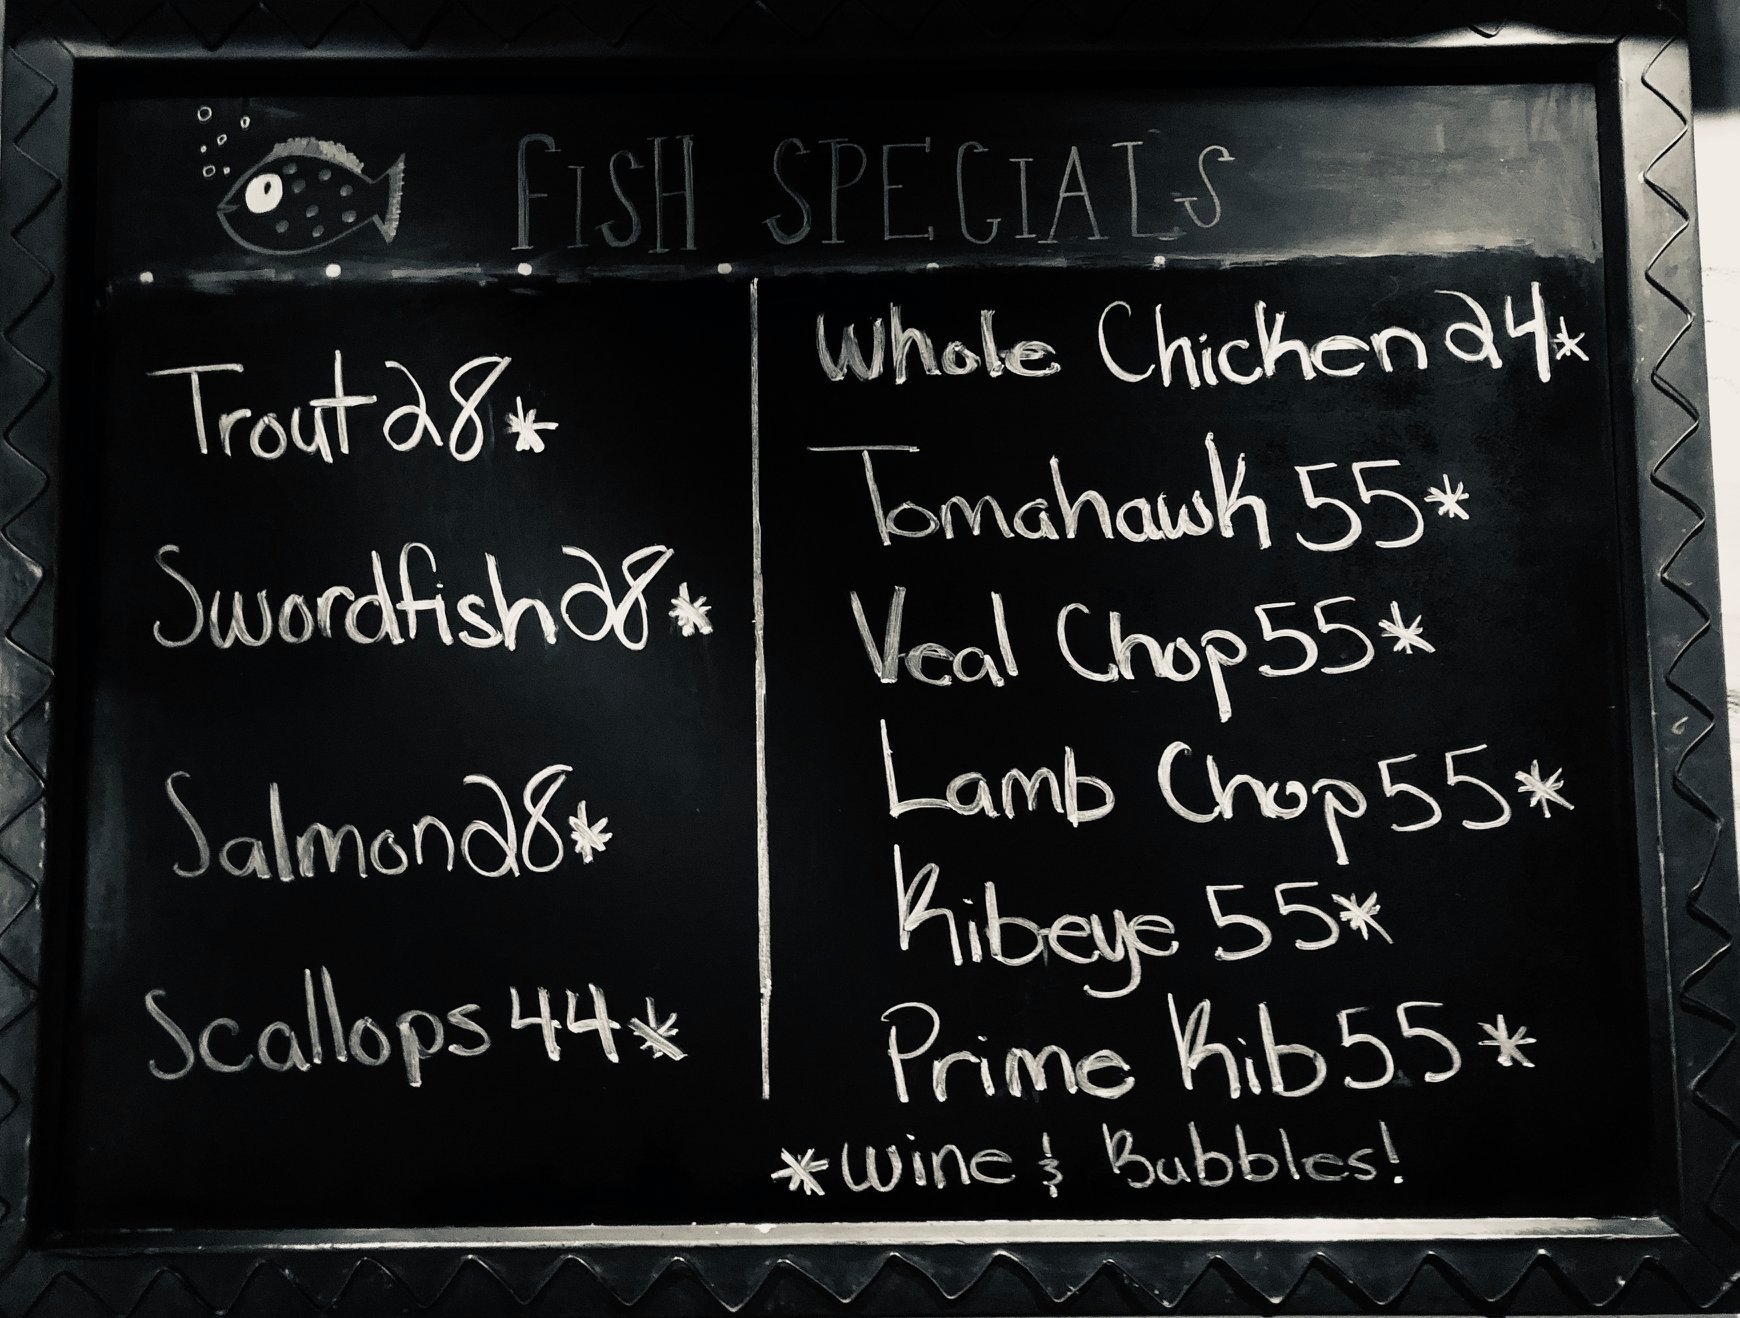 FISH SPECIALS
Trout 28*
Swordfish 28*
Salmon 28*
Scallops 44*
Whole Chicken 24*
Tomahawk 55*
Veal Chop 55*
Lamb Chop 55*
Ribeye 55*
Prime Rib 55*
*Wine & Bubbles!